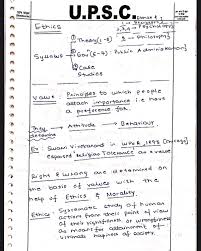 U.P.S.C
Ethics
Theory (1-6)
Syllabus
Gov (6-9) : Public Administration
Case
Studies
Value : Principles to which people
attach importance i.e have
a preference for.
They
Attitude
Behaviour
Ex : Swami Vivekanand in 1893 (Chicago)
espoused Religion Tolerance as a value.
Right & wrong are determined on
the basis of values with the
help of Ethics & Morality.
Ethics : Systematic study of human
actions from their point of view
of their rightfulness or wrongfulness
as means for attainment of
ultimate happiness of society.